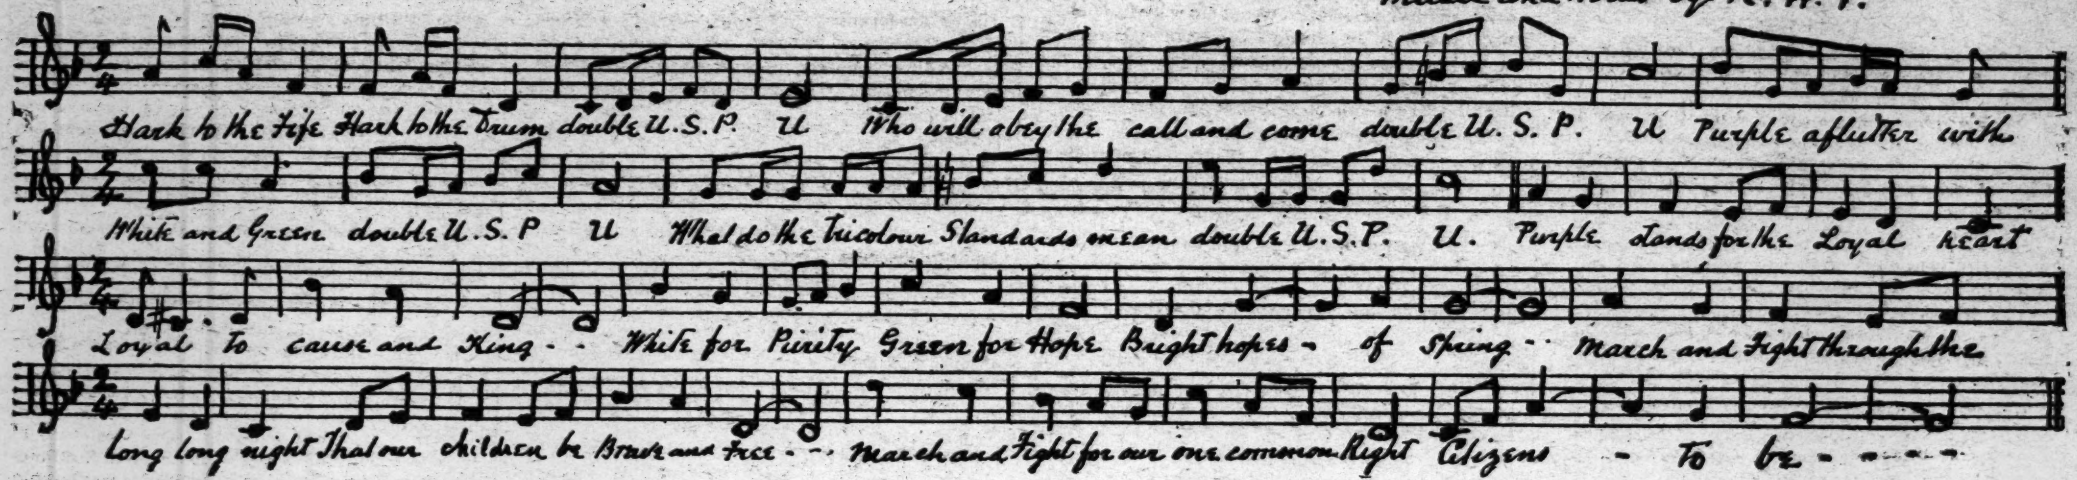 Hark to the Fife Hark to the Drum double U.S.P. U Who will obey the call and come double U. S. P. U Purple aflutter with
White and Green double U.S.P U What do the tricolour Standards mean double U.S.P. U. Purple stands for the Loyal heart
Loyal to cause and King - - White for Purity Green for Hope Bright hopes - of Spring - - March and Fight through the
Long long night That our children be Brave and Free - - - March and Fight for our one common Right Citizens - to be - - - - -